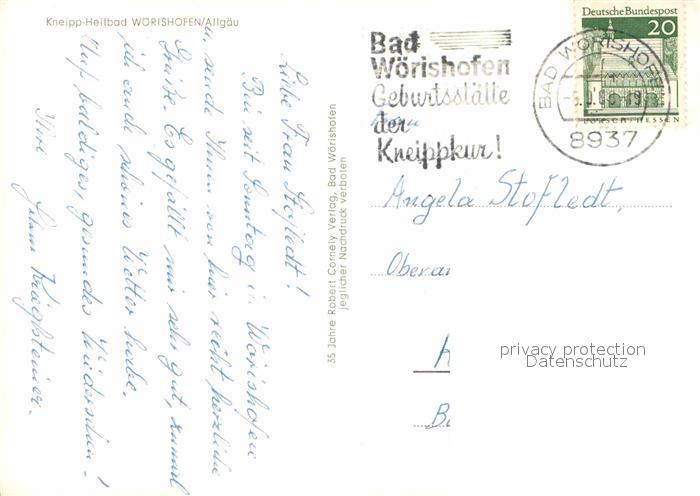 Kneipp-Heilbad WÖRISHOFEN/Allgäu
Liebe Frau Stofledt!
Bin seit Sonntag in Wörishofen
u. sende Ihnen von hier recht herzliche
Grüße. Es gefällt mir sehr gut, zumal
ich auch schönes Wetter habe.
Auf baldiges, gesundes Wiedersehen!
Ihre
35 Jahre Robert Cornely Verlag, Bad Wörishofen
jeglicher Nachdruck verboten
Bad
Wörishofen
Geburtsstätte
der
Kneippkur!
Deutsche Bundespost
20
LORSCH/HESSEN
BAD WÖRISHOFEN
8937
Frau
Angela Stofledt,
Oberau
privacy protection
Datenschutz